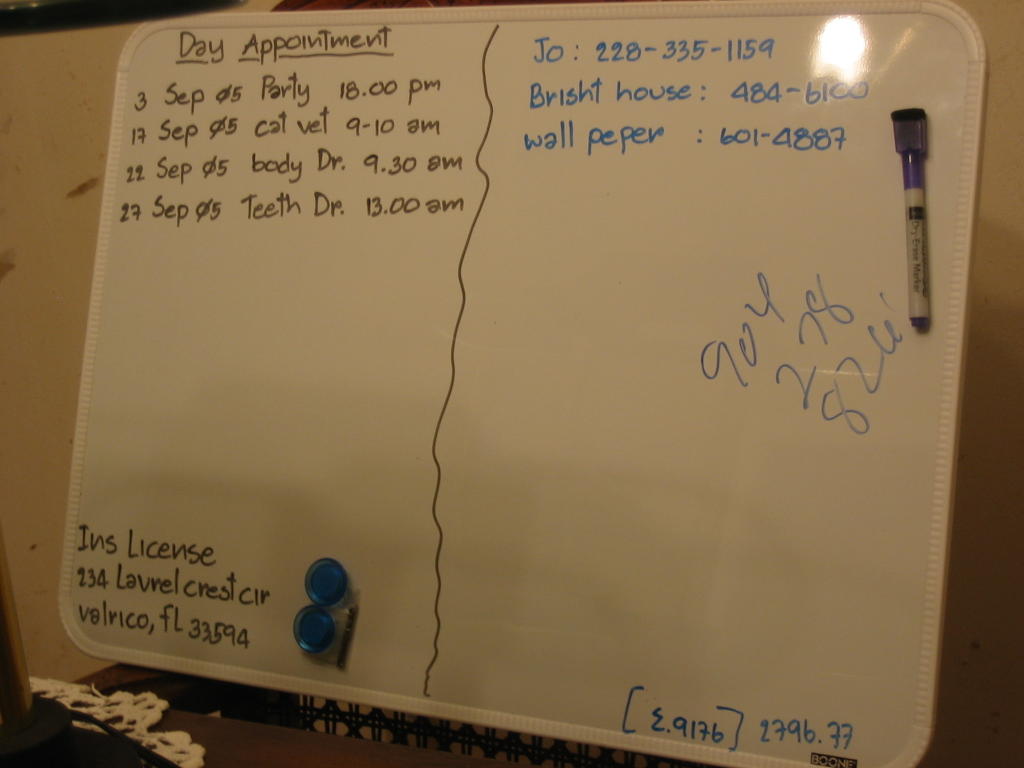 Day Appointment
3 Sep 05 Party 18.00 pm
17 Sep 05 cat vet 9-10 am
22 Sep 05 body Dr. 9.30 am
27 Sep 05 Teeth Dr. 13.00 am
Ins License
234 Laurelcrestcir
valrico, fL 33594
Jo : 228-335-1159
Brisht house : 484-6100
wall peper : 601-4887
Dry Erase Marker
904
278
[ε.9176] 2796.77
BOONE